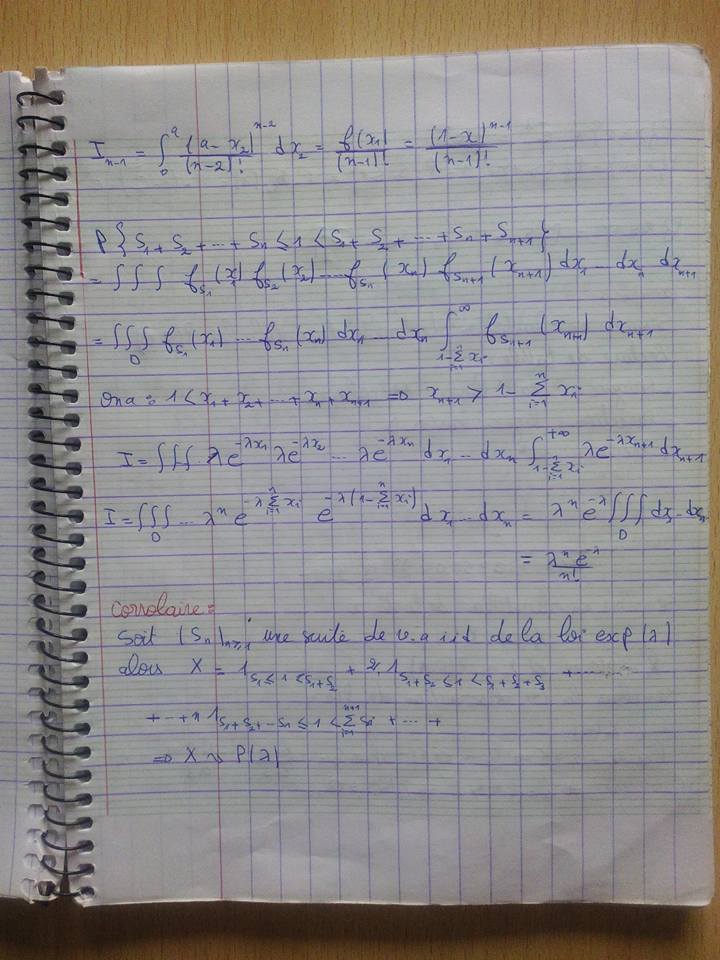 I_{n-1} = ∫_0^a (a - x_2)^{n-2} / (n-2)! dx_2 = f(x_1) / (n-1)! = (1-x)^{n-1} / (n-1)!
P { S_1 + S_2 + ... + S_n ≤ 1 < S_1 + S_2 + ... + S_n + S_{n+1} }
= ∫∫∫ f_{S_1}(x_1) f_{S_2}(x_2) ... f_{S_n}(x_n) f_{S_{n+1}}(x_{n+1}) dx_1 ... dx_n dx_{n+1}
= ∫∫∫_D f_{S_1}(x_1) ... f_{S_n}(x_n) dx_1 ... dx_n ∫_{1-∑_{i=1}^n x_i}^∞ f_{S_{n+1}}(x_{n+1}) dx_{n+1}
On a : 1 < x_1 + x_2 + ... + x_n + x_{n+1} ⇒ x_{n+1} > 1 - ∑_{i=1}^n x_i
I = ∫∫∫ λe^{-λx_1} λe^{-λx_2} ... λe^{-λx_n} dx_1 ... dx_n ∫_{1-∑_{i=1}^n x_i}^{+∞} λe^{-λx_{n+1}} dx_{n+1}
I = ∫∫∫_D ... λ^n e^{-λ∑_{i=1}^n x_i} e^{-λ(1-∑_{i=1}^n x_i)} dx_1 ... dx_n = λ^n e^{-λ} ∫∫∫_D dx_1 ... dx_n
= λ^n e^{-λ} / n!
Corrolaire :
Soit (S_n)_{n≥1} une suite de v.a iid de la loi exp(λ)
alors X = 1_{S_1 ≤ 1 < S_1+S_2} + 2 1_{S_1+S_2 ≤ 1 < S_1+S_2+S_3} + ......
+ ... + n 1_{S_1+S_2+...S_n ≤ 1 < ∑_{i=1}^{n+1} S_i} + ... +
⇒ X ~ P(λ)